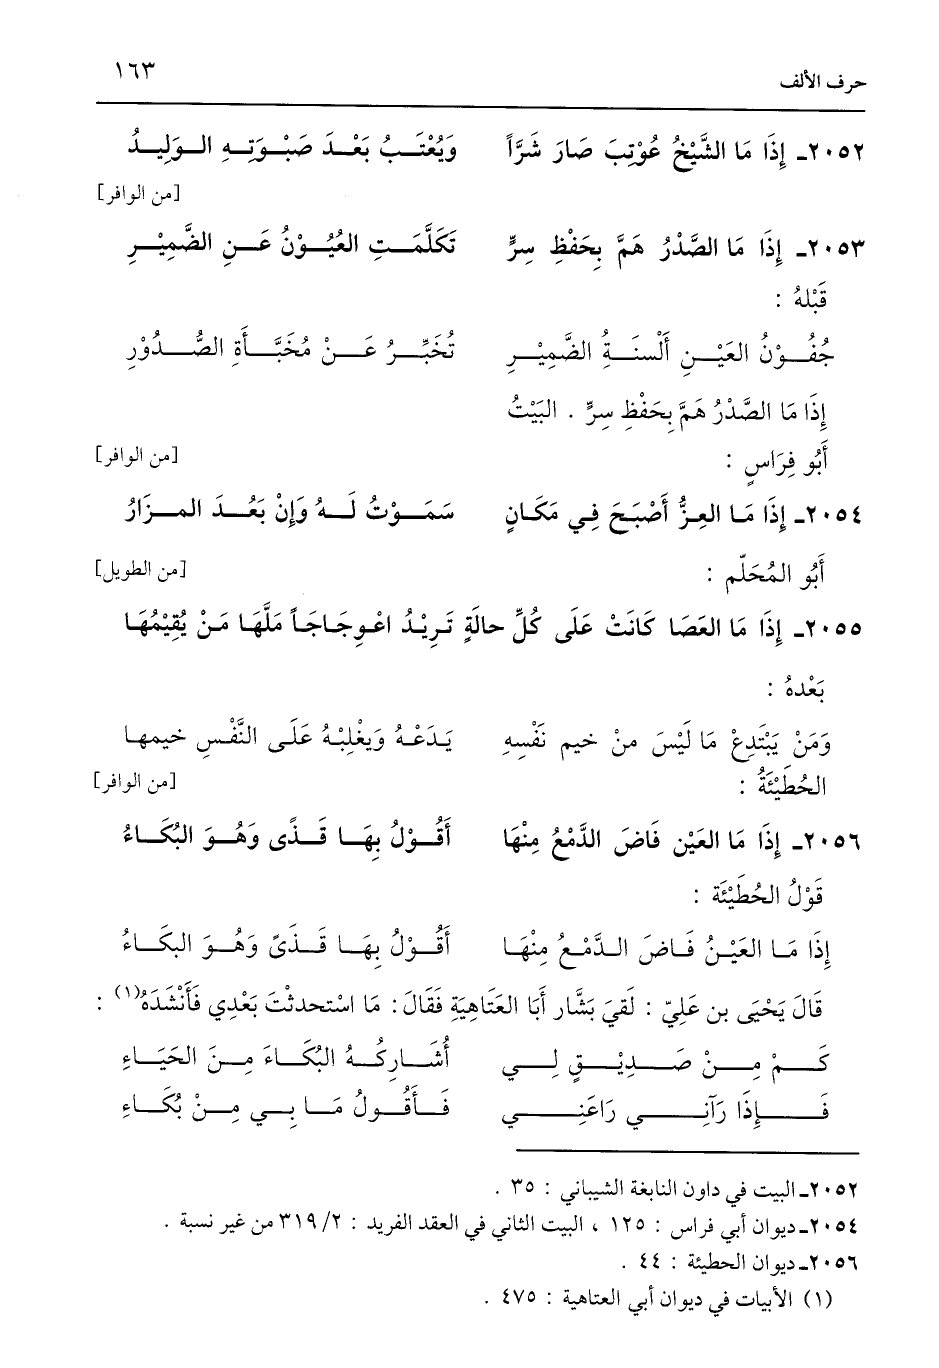 حرف الألف ١٦٣
٢٠٥٢ـ إِذَا مَا الشَّيْخُ عُوْتِبَ صَارَ شَرَّاً وَيُعْتَبُ بَعْدَ صَبْوَتِهِ الوَلِيدُ
[من الوافر]
٢٠٥٣ـ إِذَا مَا الصَّدْرُ هَمَّ بِحَفْظِ سِرٍّ تَكَلَّمَتِ العُيُوْنُ عَنِ الضَّمِيْرِ
قَبْلهُ :
جُفُوْنُ العَيْنِ أَلْسنَةُ الضَّمِيْرِ تُخَبِّرُ عَنْ مُخَبَّأَةِ الصُّدُوْرِ
إِذَا مَا الصَّدْرُ هَمَّ بِحَفْظِ سِرٍّ . البَيْتُ
أَبُو فِرَاسٍ : [من الوافر]
٢٠٥٤ـ إِذَا مَا العِزُّ أَصْبَحَ فِي مَكَانٍ سَمَوْتُ لَهُ وَإِنْ بَعُدَ المزَارُ
أَبُو المُحَلّم : [من الطويل]
٢٠٥٥ـ إِذَا مَا العَصَا كَانَتْ عَلَى كُلِّ حالَةٍ تَرِيْدُ اعْوِجَاجَاً مَلَّهَا مَنْ يُقِيْمُهَا
بَعْدهُ :
وَمَنْ يَبْتَدِعْ مَا لَيْسَ منْ خيم نَفْسِهِ يَدَعْهُ وَيغْلِبْهُ عَلَى النَّفْسِ خيمها
الحُطَيْئَةُ : [من الوافر]
٢٠٥٦ـ إِذَا مَا العَيْن فَاضَ الدَّمْعُ مِنْهَا أَقُوْلُ بِهَا قَذًى وَهُوَ البُكَاءُ
قَوْلُ الحُطَيْئَة :
إِذَا مَا العَيْنُ فَاضَ الدَّمْعُ مِنْهَا أَقُوْلُ بِهَا قَذَىً وَهُوَ البكَاءُ
قَالَ يَحْيَى بن عَلِيّ : لَقيَ بَشَّار أَبَا العَتَاهِيَةِ فَقَالَ : مَا اسْتحدثْتَ بَعْدِي فَأَنْشَدَهُ(١) :
كَمْ مِنْ صَدِيْقٍ لِي أُشَارِكُهُ البُكَاءَ مِنَ الحَيَاءِ
فَإِذَا رَآنِي رَاعَنِي فَأَقُولُ مَا بِي مِنْ بُكَاءِ
٢٠٥٢ـ البيت في داون النابغة الشيباني : ٣٥ .
٢٠٥٤ـ ديوان أبي فراس : ١٢٥ ، البيت الثاني في العقد الفريد : ٢/ ٣١٩ من غير نسبة .
٢٠٥٦ـ ديوان الحطيئة : ٤٤ .
(١) الأبيات في ديوان أبي العتاهية : ٤٧٥ .